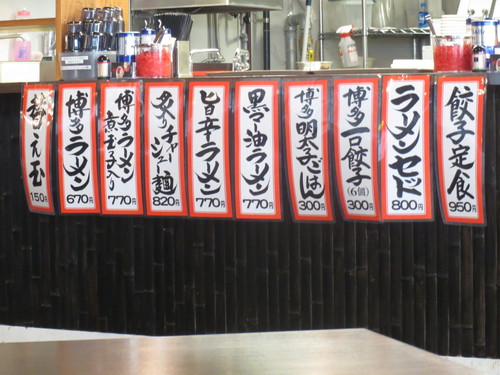 餃子定食
950円
ラーメンセット
800円
博多一口餃子
(6個)
300円
博多明太子ごはん
300円
黒マー油ラーメン
770円
旨辛ラーメン
770円
炙りチャーシュー麺
820円
博多ラーメン
煮玉子入り
770円
博多ラーメン
670円
替え玉
150円